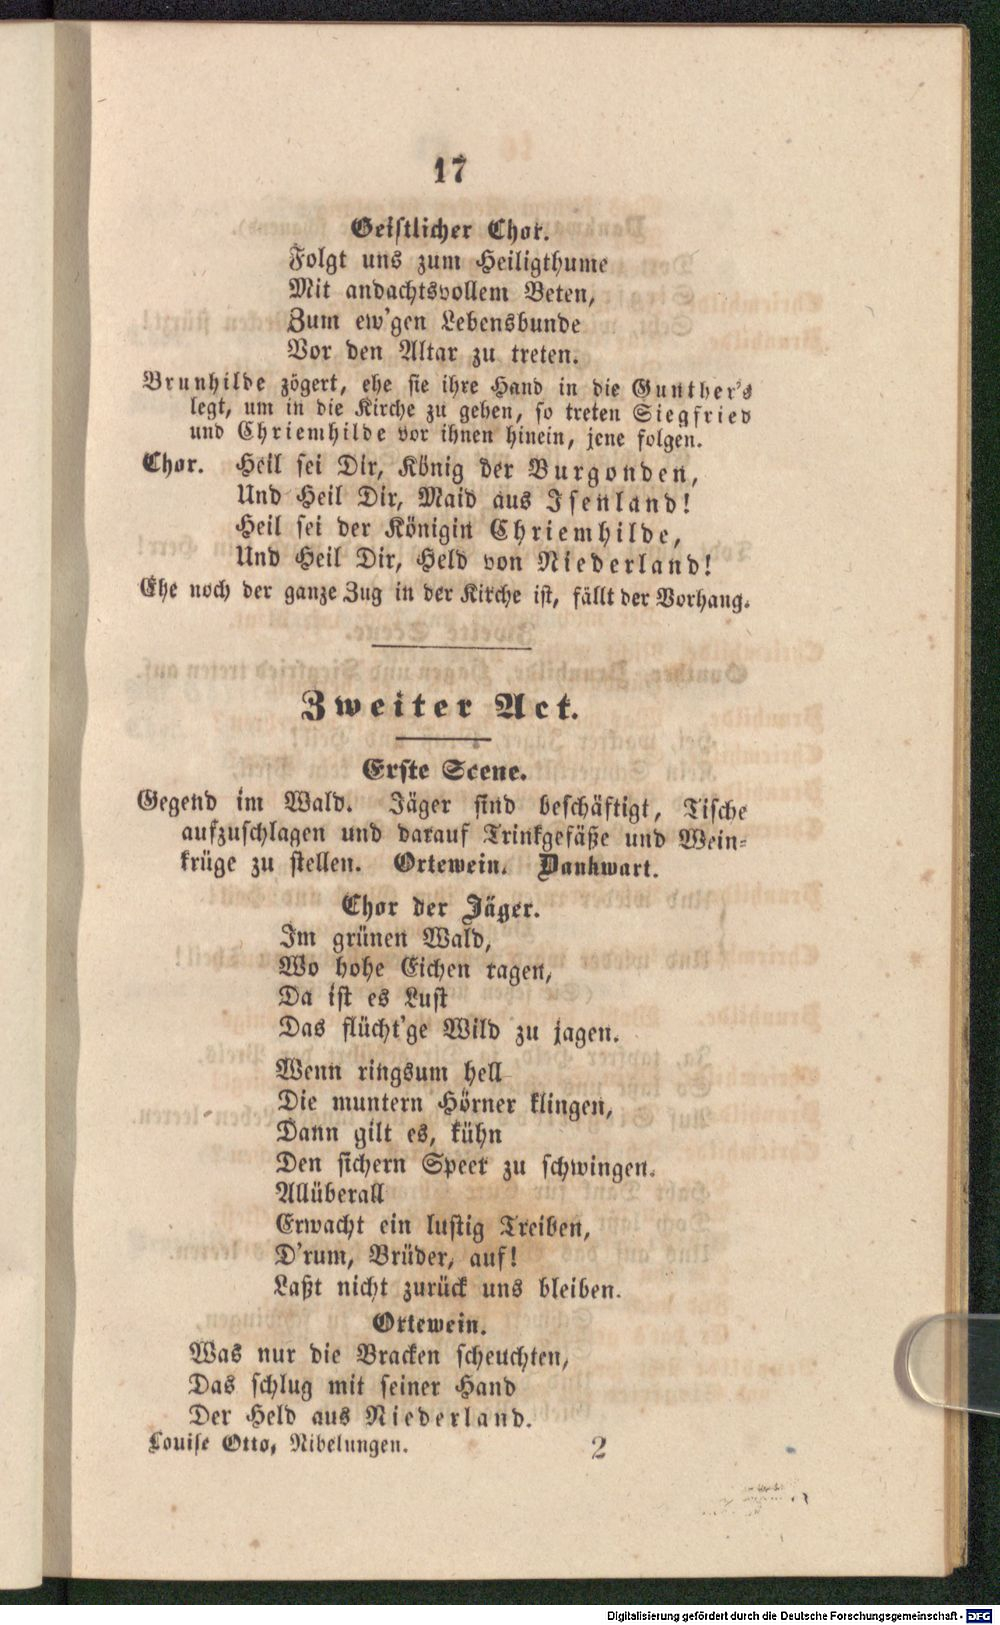 17
Geistlicher Chor.
Folgt uns zum Heiligthume
Mit andachtsvollem Beten,
Zum ew'gen Lebensbunde
Vor den Altar zu treten.
Brunhilde zögert, ehe sie ihre Hand in die Gunther's
legt, um in die Kirche zu gehen, so treten Siegfried
und Chriemhilde vor ihnen hinein, jene folgen.
Chor. Heil sei Dir, König der Burgonden,
Und Heil Dir, Maid aus Isenland!
Heil sei der Königin Chriemhilde,
Und Heil Dir, Held von Niederland!
Ehe noch der ganze Zug in der Kirche ist, fällt der Vorhang.
Zweiter Act.
Erste Scene.
Gegend im Wald. Jäger sind beschäftigt, Tische
aufzuschlagen und darauf Trinkgefäße und Wein-
krüge zu stellen. Ortewein. Dankwart.
Chor der Jäger.
Im grünen Wald,
Wo hohe Eichen ragen,
Da ist es Lust
Das flücht'ge Wild zu jagen.
Wenn ringsum hell
Die muntern Hörner klingen,
Dann gilt es, kühn
Den sichern Speer zu schwingen.
Allüberall
Erwacht ein lustig Treiben,
D'rum, Brüder, auf!
Laßt nicht zurück uns bleiben.
Ortewein.
Was nur die Bracken scheuchten,
Das schlug mit seiner Hand
Der Held aus Niederland.
Louise Otto, Nibelungen. 2
Digitalisierung gefördert durch die Deutsche Forschungsgemeinschaft - DFG